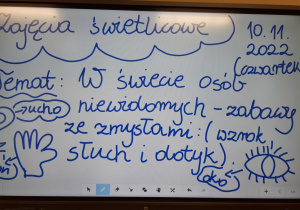 Zajęcia świetlicowe
10.11.
2022
(czwartek)
Temat: W świecie osób
→ucho niewidomych - zabawy
ze zmysłami: (wzrok,
słuch i dotyk)
oko